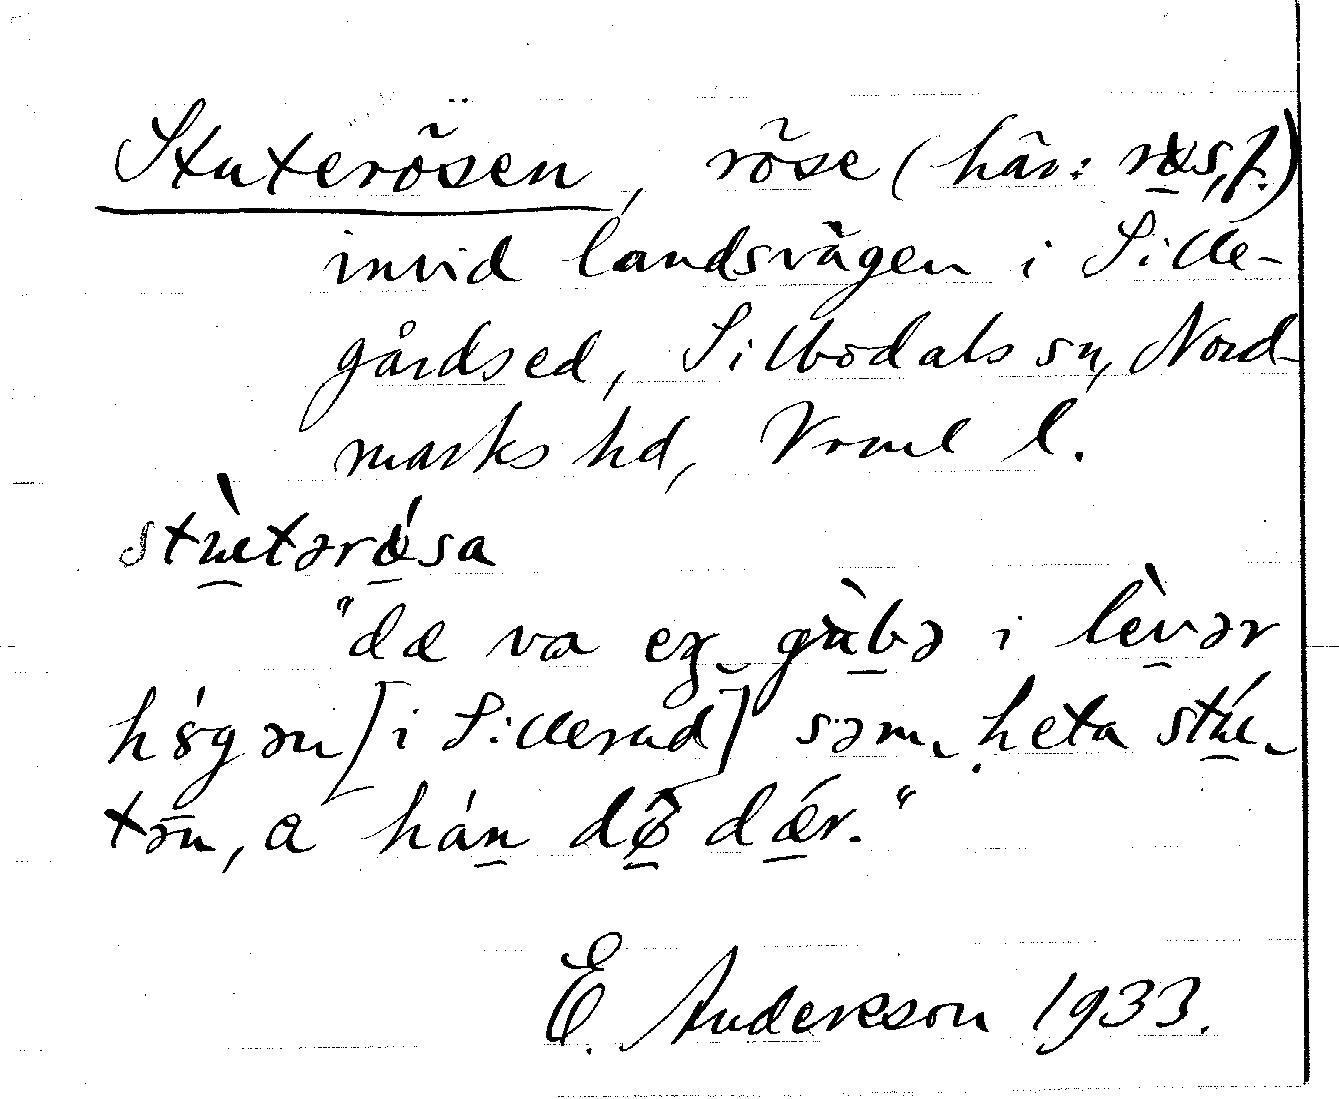 Stuterösen, röse (här: røs, f.)
invid landsvägen i Sille-
gårdsed, Silbodals sn, Nord-
marks hd, Vrml l.
stùtərǿsa
"dæ va eŋ gùbə i lèvər
hǿgən [i Sillerud] səm heta stú-
tən, a hán dø̂ dǽr."
E. Andersson 1933.